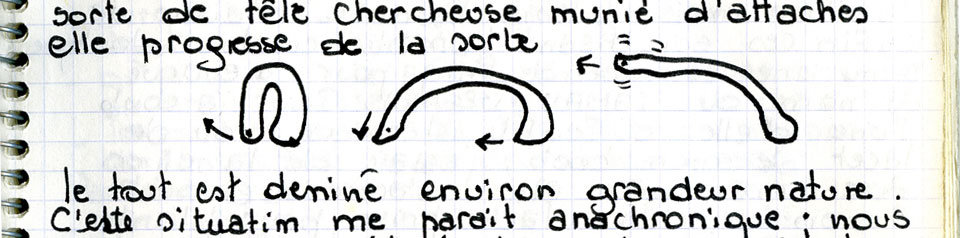 sorte de tête chercheuse munie d'attaches
elle progresse de la sorte
le tout est deminé environ grandeur nature.
C'este situatim me paraît anachronique ; nous